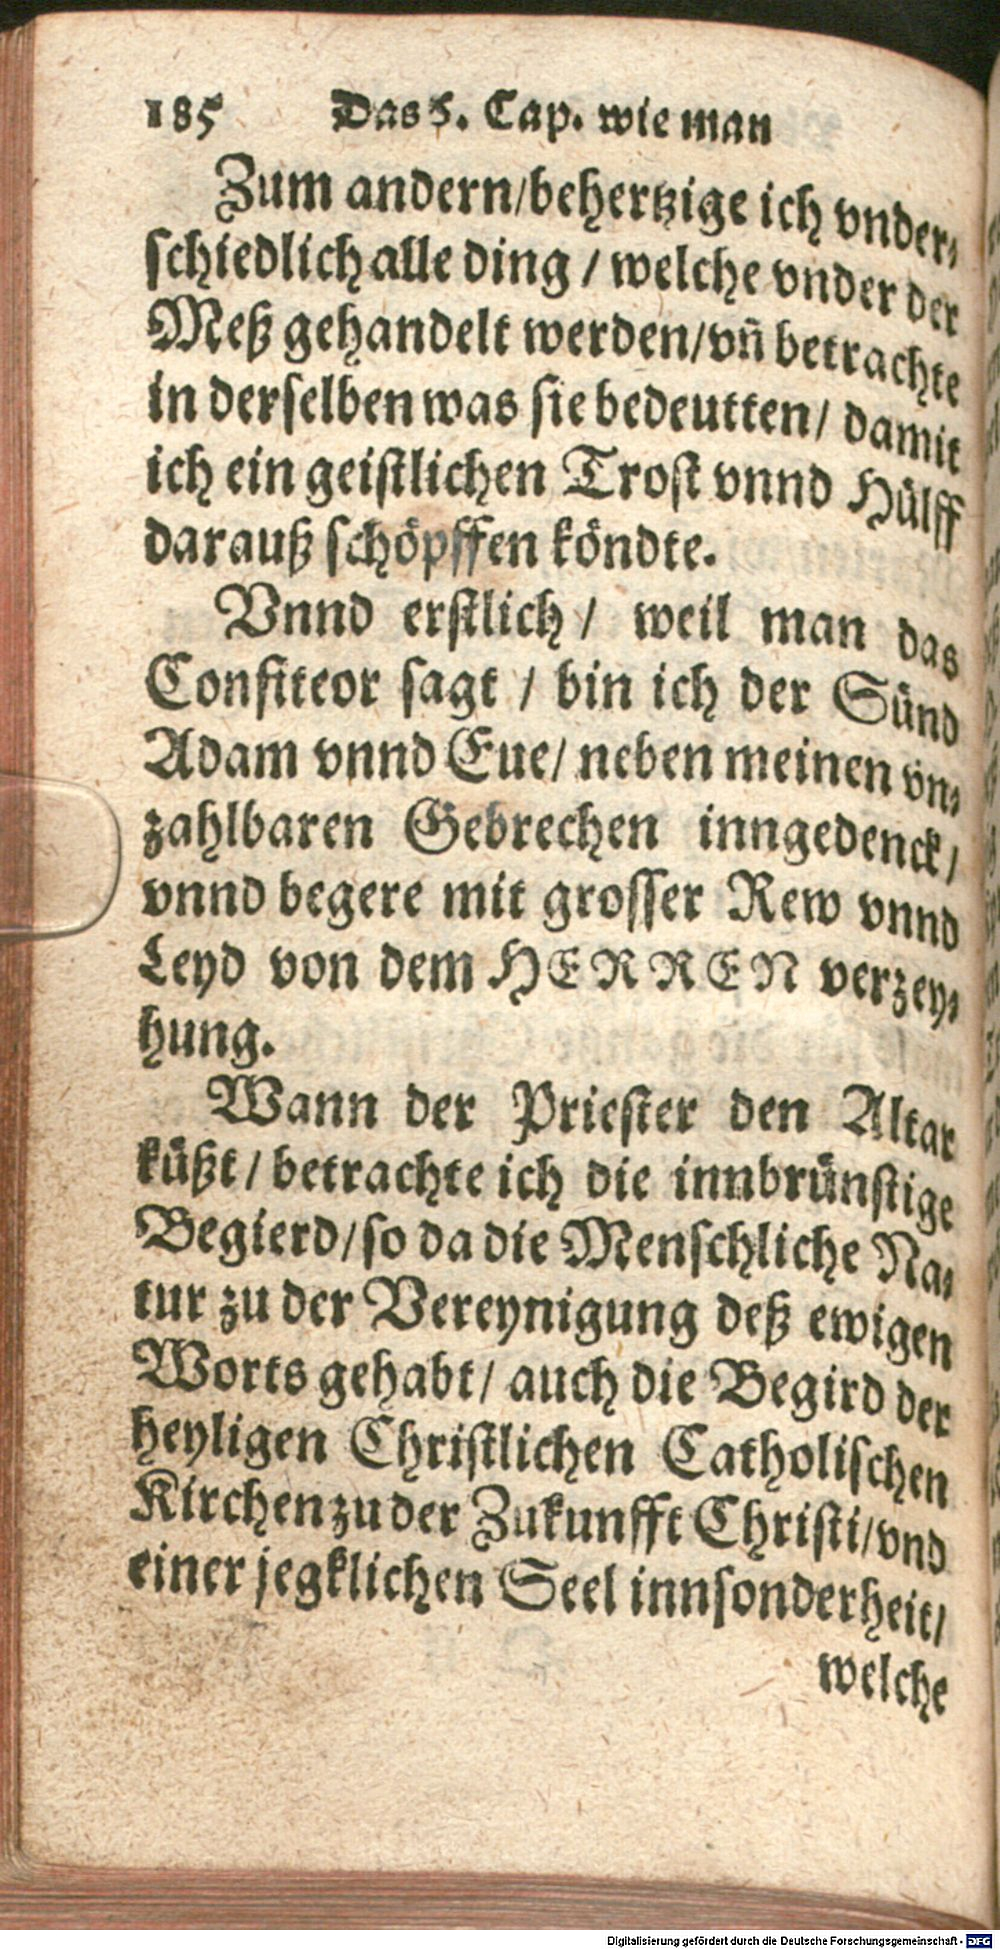 185 Das 5. Cap. wie man
Zum andern/behertzige ich vnder-
schiedlich alle ding / welche vnder der
Meß gehandelt werden/vn̄ betrachte
in derselben was sie bedeutten/ damit
ich ein geistlichen Trost vnnd Hülff
darauß schöpffen köndte.
Vnnd erstlich / weil man das
Confiteor sagt / bin ich der Sünd
Adam vnnd Eue/ neben meinen vn-
zahlbaren Gebrechen inngedenck/
vnnd begere mit grosser Rew vnnd
Leyd von dem HERREN verzey-
hung.
Wann der Priester den Altar
küßt / betrachte ich die innbrünstige
Begierd/so da die Menschliche Na-
tur zu der Vereynigung deß ewigen
Worts gehabt/ auch die Begird der
heyligen Christlichen Catholischen
Kirchen zu der Zukunfft Christi/vnd
einer jegklichen Seel innsonderheit/
welche
Digitalisierung gefördert durch die Deutsche Forschungsgemeinschaft - DFG